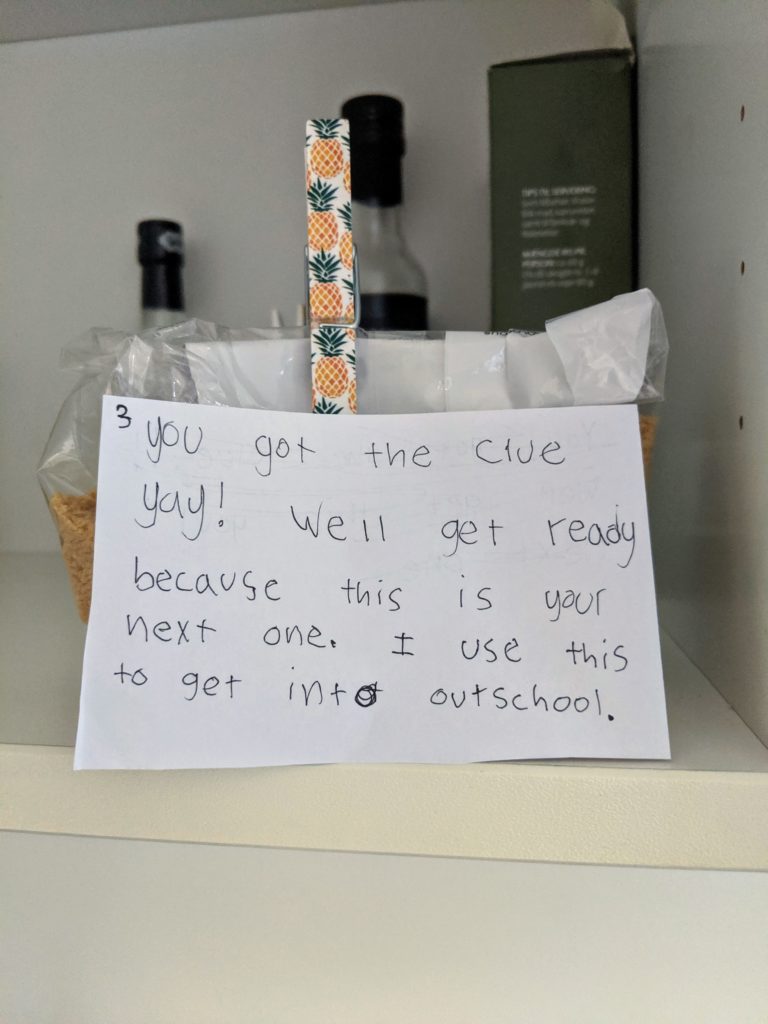 3 you got the clue
yay! Well get ready
because this is your
next one. I use this
to get into outschool.